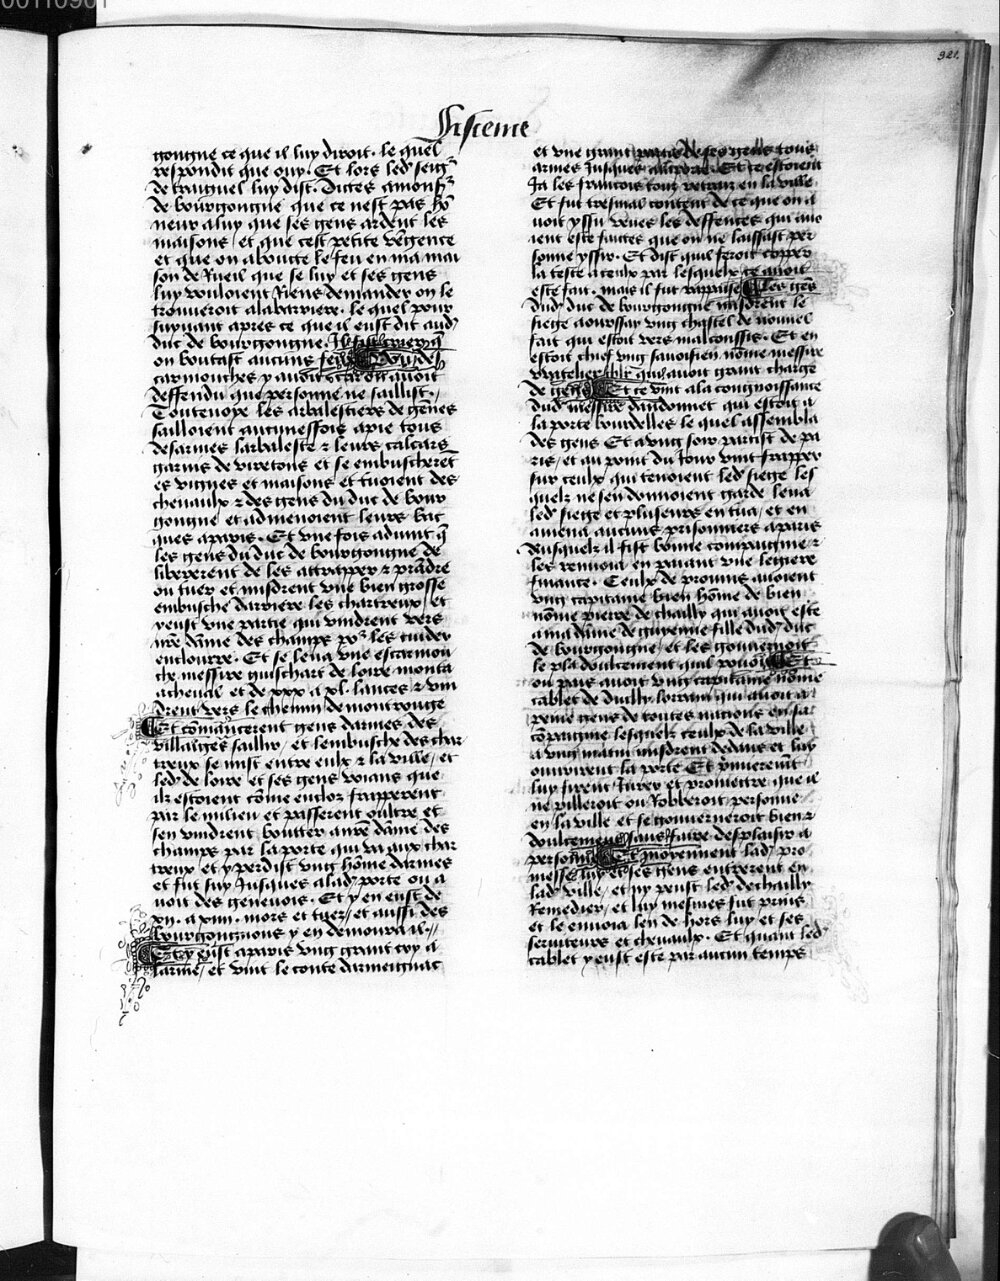 321.
Sisieme
gongne ce que il luy diroit. le quel
respondit que ouy. Et lors led' seig'
de trauguel luy dist. Dictes a mons'
de bourgongne que ce nest pas hō
neur a luy que ses gens ardent les
maisons / et que cest petite vēgence
et que on a boute le feu en ma mai
son de Rueil que se luy et ses gens
luy vouloient riens demander on le
trouueroit a la barriere. le quel pour
suyuant apres ce que il eust dit aud'
duc de bourgongne. Il fist crier q̄
on boutast aucuns feux des
carmouches y auoit car on auoit
deffendu que personne ne saillist./
Toutenoye les arbalestiers de gēnes
sailloient aucuneffois a pie tous
desarmes larbaleste ⁊ leurs calcars
garnis de viretons et se embuscherēt
es vignes et maisons et tuoient des
cheuaulx ⁊ des gens du duc de bour
gongne et admenoient leurs bac
ques a paris. Et vne fois aduint q̄
les gens du duc de bourgongne de
libererent de les attrapper ⁊ prādre
ou tuer et misdrent vne bien grosse
embusche darriere les chartreux / et
y eust vne partie qui vindrent vers
nr̄e dāme des champs po' les cuider
enclourre. Et se leua vne escarmou
che messire guischart de loire monta
a cheual et de xxx a xl. lances ⁊ vin
drent vers le chemin de montrouge
Et cōmancerent gens darmes des
villaiges saillir / et lembusche des char
treux se mist entre eulx ⁊ la ville / et
led' de loire et ses gens voians que
ilz estoient cōme encloz frapperent
par le milieu et passerent oultre et
sen vindrent boutter a nr̄e dāme des
champs par la porte qui va aux char
treux et y perdist vng hōme darmes
et fut suy jusques a lad' porte ou a
uoit des geneuois. Et y en eust de
xij. a xiiii. mors et tuez / et aussi des
bourgongnons y en demoura il./
Et ey eust a paris vng grant cry a
larme / et vint le conte darmeignac
et vne grant partie de ses gens tous
armes jusques Et se estoient
ja les francois tout retraiz en la ville
Et fut tresmal content de ce que on a
uoit yssu veues les deffences qui auo
ient este faictes que on ne laissast per
sonne yssir. Et dist quil feroit copper
la teste a ceulx par lesquelx ce auoit
este fait. mais il fut rappaise Les gēs
dud' duc de bourgongne misdrent le
siege a oursay vng chastel de nouuel
fait qui estoit vers malconssis. Et en
estoit chief vng sauoisien nōme messire
qui auoit grant charge
de gens Et ce vint a la congnoissance
dud' messire dandonnet qui estoit a
la porte bourdelles le quel assembla
des gens Et a vng soir partist de pa
ris / et au point du jour vint frapper
sur ceulx qui tenoient led' siege les
quelz ne sen donnoient garde leua
led' siege et plusieurs en tua / et en
amena aucuns prisonniers a paris
desquelz il fist bonne compaignie ⁊
les renuoia en paiant vne legiere
finance. Ceulx de prouuis auoient
vng capitaine bien hōme de bien
nōme pierre de chailly qui auoit este
a ma dame de guyenne fille dud' duc
de bourgongne / et les gouuernoit
le pl9 doulcement quil pouoit Et
ou pais auoit vng capitaine nōme
cablet de duilly lorrain qui auoit a
prins gens de toutes nacions en sa
cōpaignie lesquelz ceulx de la ville
a vng matin misdrent dedans et luy
ouurirent la porte Et p̄mierement
luy firent jurer et promettre que il
ne pilleroit ou robberoit personne
en la ville et se gouuerneroit bien ⁊
doulcement sans faire desplaisir a
personne Et moyennent lad' pro
messe luy et ses gens entrerent en
lad' ville / et ny peust led' de chailly
remedier / et luy mesmes fut prins
et le enuoia len de hors luy et ses
seruiteurs et cheuaulx. Et quant led'
cablet y eust este par aucun temps